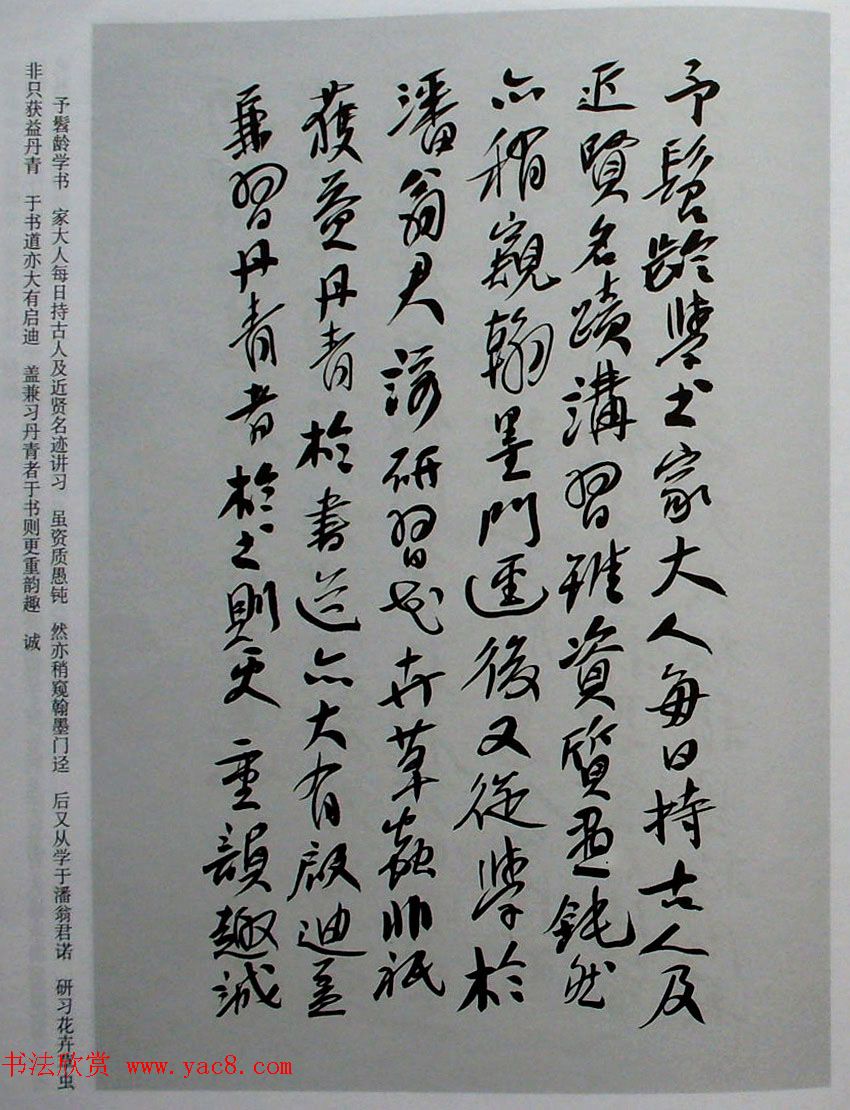 予髫齡學書家大人每日持古人及
近賢名蹟講習雖資質愚鈍然
亦稍窺翰墨門逕後又從學於
潘翁君諾研習花卉草蟲非祇
獲益丹青於書道亦大有啟迪蓋
兼習丹青者於書則更重韻趣誠
予髫龄学书　家大人每日持古人及近贤名迹讲习　虽资质愚钝　然亦稍窥翰墨门迳　后又从学于潘翁君诺　研习花卉草虫
非只获益丹青　于书道亦大有启迪　盖兼习丹青者于书则更重韵趣　诚
书法欣赏 www.yac8.com